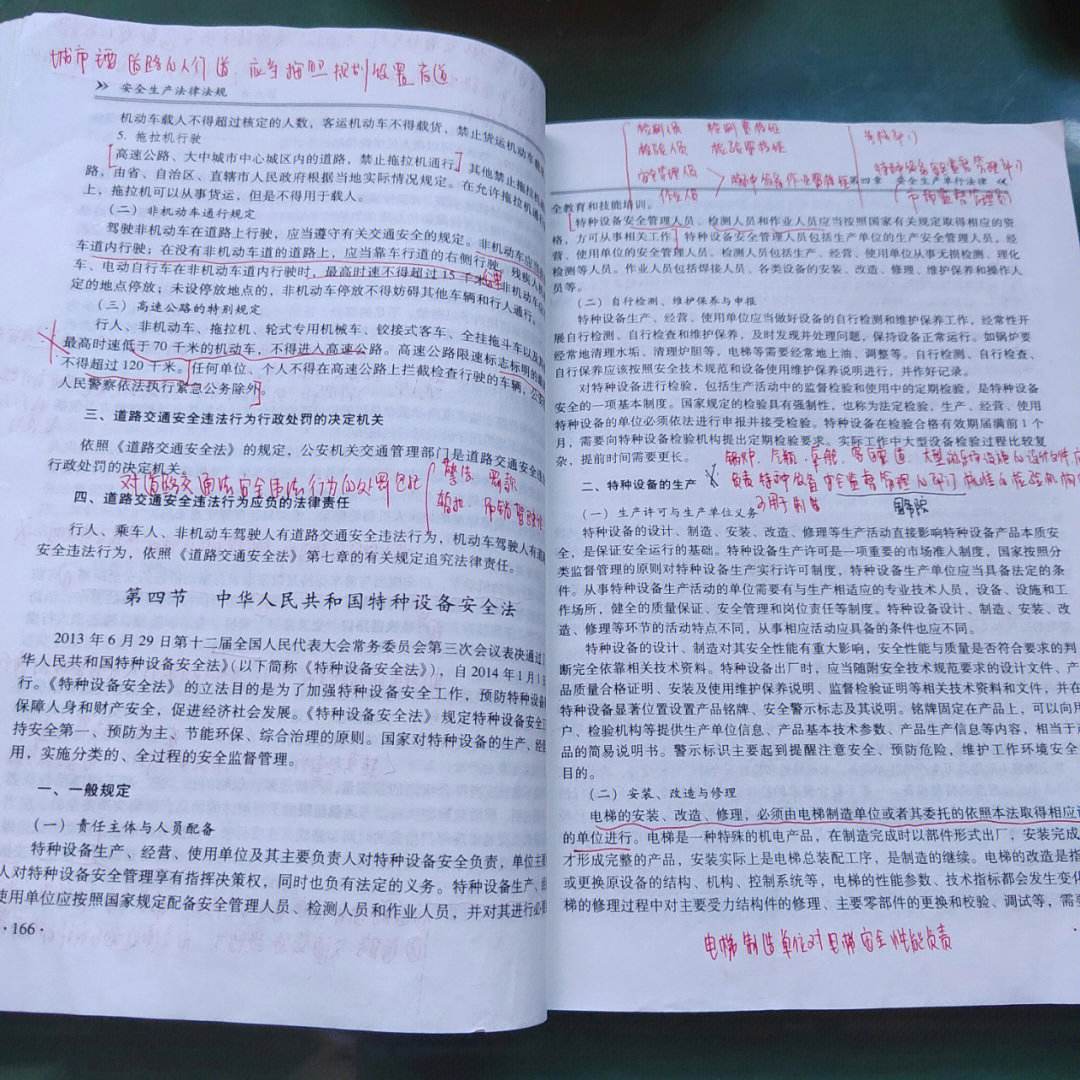 城市 道路的人行道 应当按照规划设置盲道
安全生产法律法规
机动车载人不得超过核定的人数，客运机动车不得载货，禁止货运机动车载
5. 拖拉机行驶
高速公路、大中城市中心城区内的道路，禁止拖拉机通行。其他禁止拖拉机通
路，由省、自治区、直辖市人民政府根据当地实际情况规定。在允许拖拉机通行
上，拖拉机可以从事货运，但是不得用于载人。
（二）非机动车通行规定
驾驶非机动车在道路上行驶，应当遵守有关交通安全的规定。非机动车应当
车道内行驶；在没有非机动车道的道路上，应当靠车行道的右侧行驶。残疾人机
车、电动自行车在非机动车道内行驶时，最高时速不得超过 15 千米。非机动车应
公里
定的地点停放；未设停放地点的，非机动车停放不得妨碍其他车辆和行人通行。
（三）高速公路的特别规定
行人、非机动车、拖拉机、轮式专用机械车、铰接式客车、全挂拖斗车以及其
最高时速低于 70 千米的机动车，不得进入高速公路。高速公路限速标志标明的最
不得超过 120 千米。任何单位、个人不得在高速公路上拦截检查行驶的车辆，公安
人民警察依法执行紧急公务除外。
三、道路交通安全违法行为行政处罚的决定机关
依照《道路交通安全法》的规定，公安机关交通管理部门是道路交通安全违法
行政处罚的决定机关。
对道路交通安全违法行为的处罚包括
警告 罚款
暂扣
四、道路交通安全违法行为应负的法律责任
行人、乘车人、非机动车驾驶人有道路交通安全违法行为，机动车驾驶人有道
安全违法行为，依照《道路交通安全法》第七章的有关规定追究法律责任。
第四节 中华人民共和国特种设备安全法
2013 年 6 月 29 日第十二届全国人民代表大会常务委员会第三次会议表决通过
华人民共和国特种设备安全法》（以下简称《特种设备安全法》），自 2014 年 1 月 1
行。《特种设备安全法》的立法目的是为了加强特种设备安全工作，预防特种设备
保障人身和财产安全，促进经济社会发展。《特种设备安全法》规定特种设备安全
持安全第一、预防为主、节能环保、综合治理的原则。国家对特种设备的生产、经
用，实施分类的、全过程的安全监督管理。
一、一般规定
（一）责任主体与人员配备
特种设备生产、经营、使用单位及其主要负责人对特种设备安全负责，单位主
人对特种设备安全管理享有指挥决策权，同时也负有法定的义务。特种设备生产、
使用单位应按照国家规定配备安全管理人员、检测人员和作业人员，并对其进行必
·166·
检测人员 检测资格证
检验人员 检验资格证
安全管理人员
作业人员
特种设备安全监督管理部门
第四章 安全生产单行法律
全教育和技能培训。
特种设备安全管理人员、检测人员和作业人员应当按照国家有关规定取得相应的资
格，方可从事相关工作。特种设备安全管理人员包括生产单位的生产安全管理人员，经
营、使用单位的安全管理人员。检测人员包括生产、经营、使用单位从事无损检测、理化
检测等人员。作业人员包括焊接人员、各类设备的安装、改造、修理、维护保养和操作人
员等。
（二）自行检测、维护保养与申报
特种设备生产、经营、使用单位应当做好设备的自行检测和维护保养工作，经常性开
展自行检测、自行检查和维护保养，及时发现并处理问题，保持设备正常运行。如锅炉要
经常地清理水垢、清理炉胆等，电梯等需要经常地上油、调整等。自行检测、自行检查、
自行保养应该按照安全技术规范和设备使用维护保养说明进行，并作好记录。
对特种设备进行检验，包括生产活动中的监督检验和使用中的定期检验，是特种设备
安全的一项基本制度。国家规定的检验具有强制性，也称为法定检验，生产、经营、使用
特种设备的单位必须依法进行申报并接受检验。特种设备在检验合格有效期届满前 1 个
月，需要向特种设备检验机构提出定期检验要求。实际工作中大型设备检验过程比较复
杂，提前时间需要更长。
二、特种设备的生产
负责特种设备安全监督管理的部门核准的检验机构
可用于制造
国务院
（一）生产许可与生产单位义务
特种设备的设计、制造、安装、改造、修理等生产活动直接影响特种设备产品本质安
全，是保证安全运行的基础。特种设备生产许可是一项重要的市场准入制度，国家按照分
类监督管理的原则对特种设备生产实行许可制度，特种设备生产单位应当具备法定的条
件。从事特种设备生产活动的单位需要有与生产相适应的专业技术人员，设备、设施和工
作场所，健全的质量保证、安全管理和岗位责任等制度。特种设备设计、制造、安装、改
造、修理等环节的活动特点不同，从事相应活动应具备的条件也应不同。
特种设备的设计、制造对其安全性能有重大影响，安全性能与质量是否符合要求的判
断完全依靠相关技术资料。特种设备出厂时，应当随附安全技术规范要求的设计文件、产
品质量合格证明、安装及使用维护保养说明、监督检验证明等相关技术资料和文件，并在
特种设备显著位置设置产品铭牌、安全警示标志及其说明。铭牌固定在产品上，可以向用
户、检验机构等提供生产单位信息、产品基本技术参数、产品生产信息等内容，相当于产
品的简易说明书。警示标识主要起到提醒注意安全、预防危险，维护工作环境安全
目的。
（二）安装、改造与修理
电梯的安装、改造、修理，必须由电梯制造单位或者其委托的依照本法取得相应许
的单位进行。电梯是一种特殊的机电产品，在制造完成时以部件形式出厂，安装完成
才形成完整的产品，安装实际上是电梯总装配工序，是制造的继续。电梯的改造是指
或更换原设备的结构、机构、控制系统等，电梯的性能参数、技术指标都会发生变化
梯的修理过程中对主要受力结构件的修理、主要零部件的更换和校验、调试等，需要
电梯制造单位对电梯安全性能负责